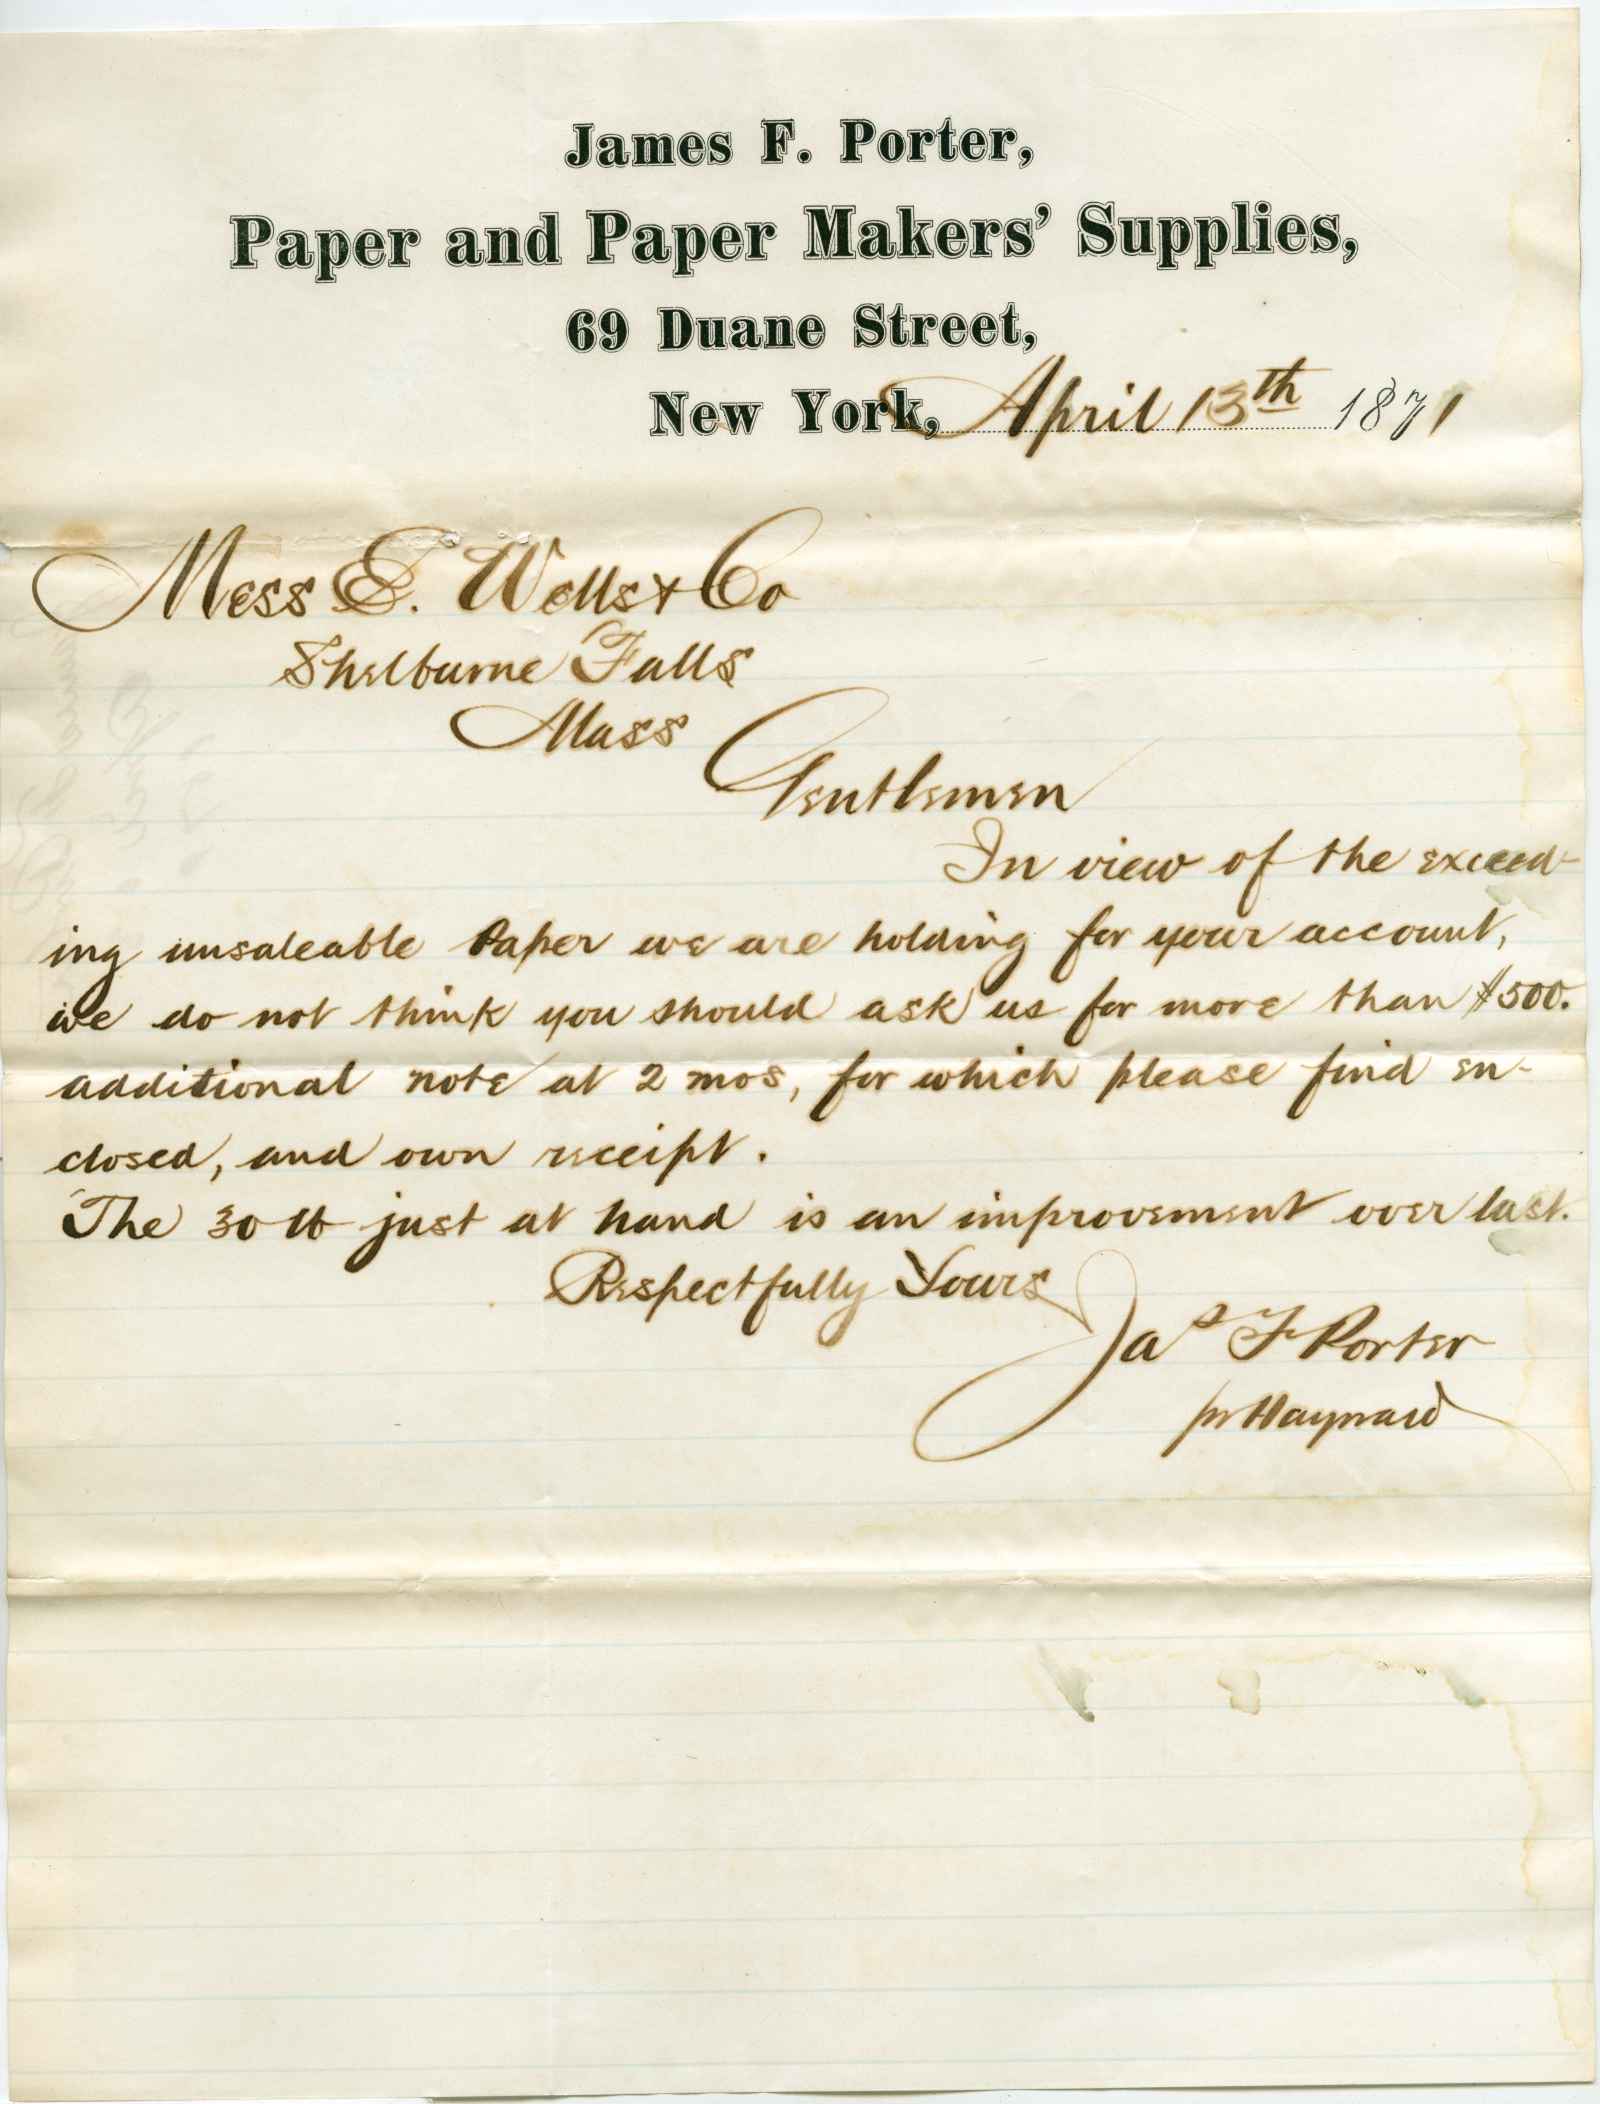 James F. Porter,
Paper and Paper Makers' Supplies,
69 Duane Street,
New York, April 13th 1871
Mess E. Wells & Co
Shelburne Falls
Mass
Gentlemen
In view of the exceed-
ing unsaleable Paper we are holding for your account,
we do not think you should ask us for more than $500.
additional note at 2 mos, for which please find en-
closed, and own receipt.
The 30 lb just at hand is an improvement over last.
Respectfully Yours
Jas F Porter
pr Haynard